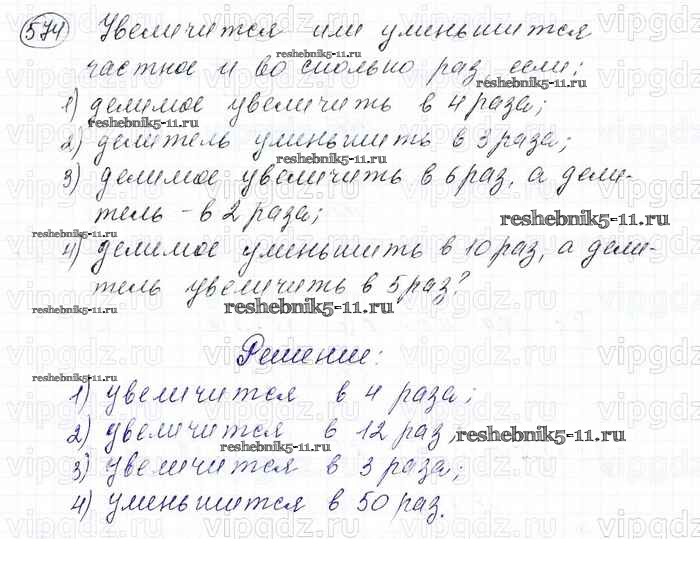 574 Увеличится или уменьшится
reshebnik5-11.ru
частное и во сколько раз, если:
reshebnik5-11.ru
1) делимое увеличить в 4 раза;
reshebnik5-11.ru
2) делитель уменьшить в 3 раза;
reshebnik5-11.ru
3) делимое увеличить в 6 раз, а дели-
тель – в 2 раза;
reshebnik5-11.ru
reshebnik5-11.ru
4) делимое уменьшить в 10 раз, а дели-
тель увеличить в 5 раз?
reshebnik5-11.ru
reshebnik5-11.ru
Решение:
reshebnik5-11.ru
1) увеличится в 4 раза;
2) увеличится в 12 раз,
reshebnik5-11.ru
reshebnik5-11.ru
3) увеличится в 3 раза;
4) уменьшится в 50 раз.
vipgdz.ru